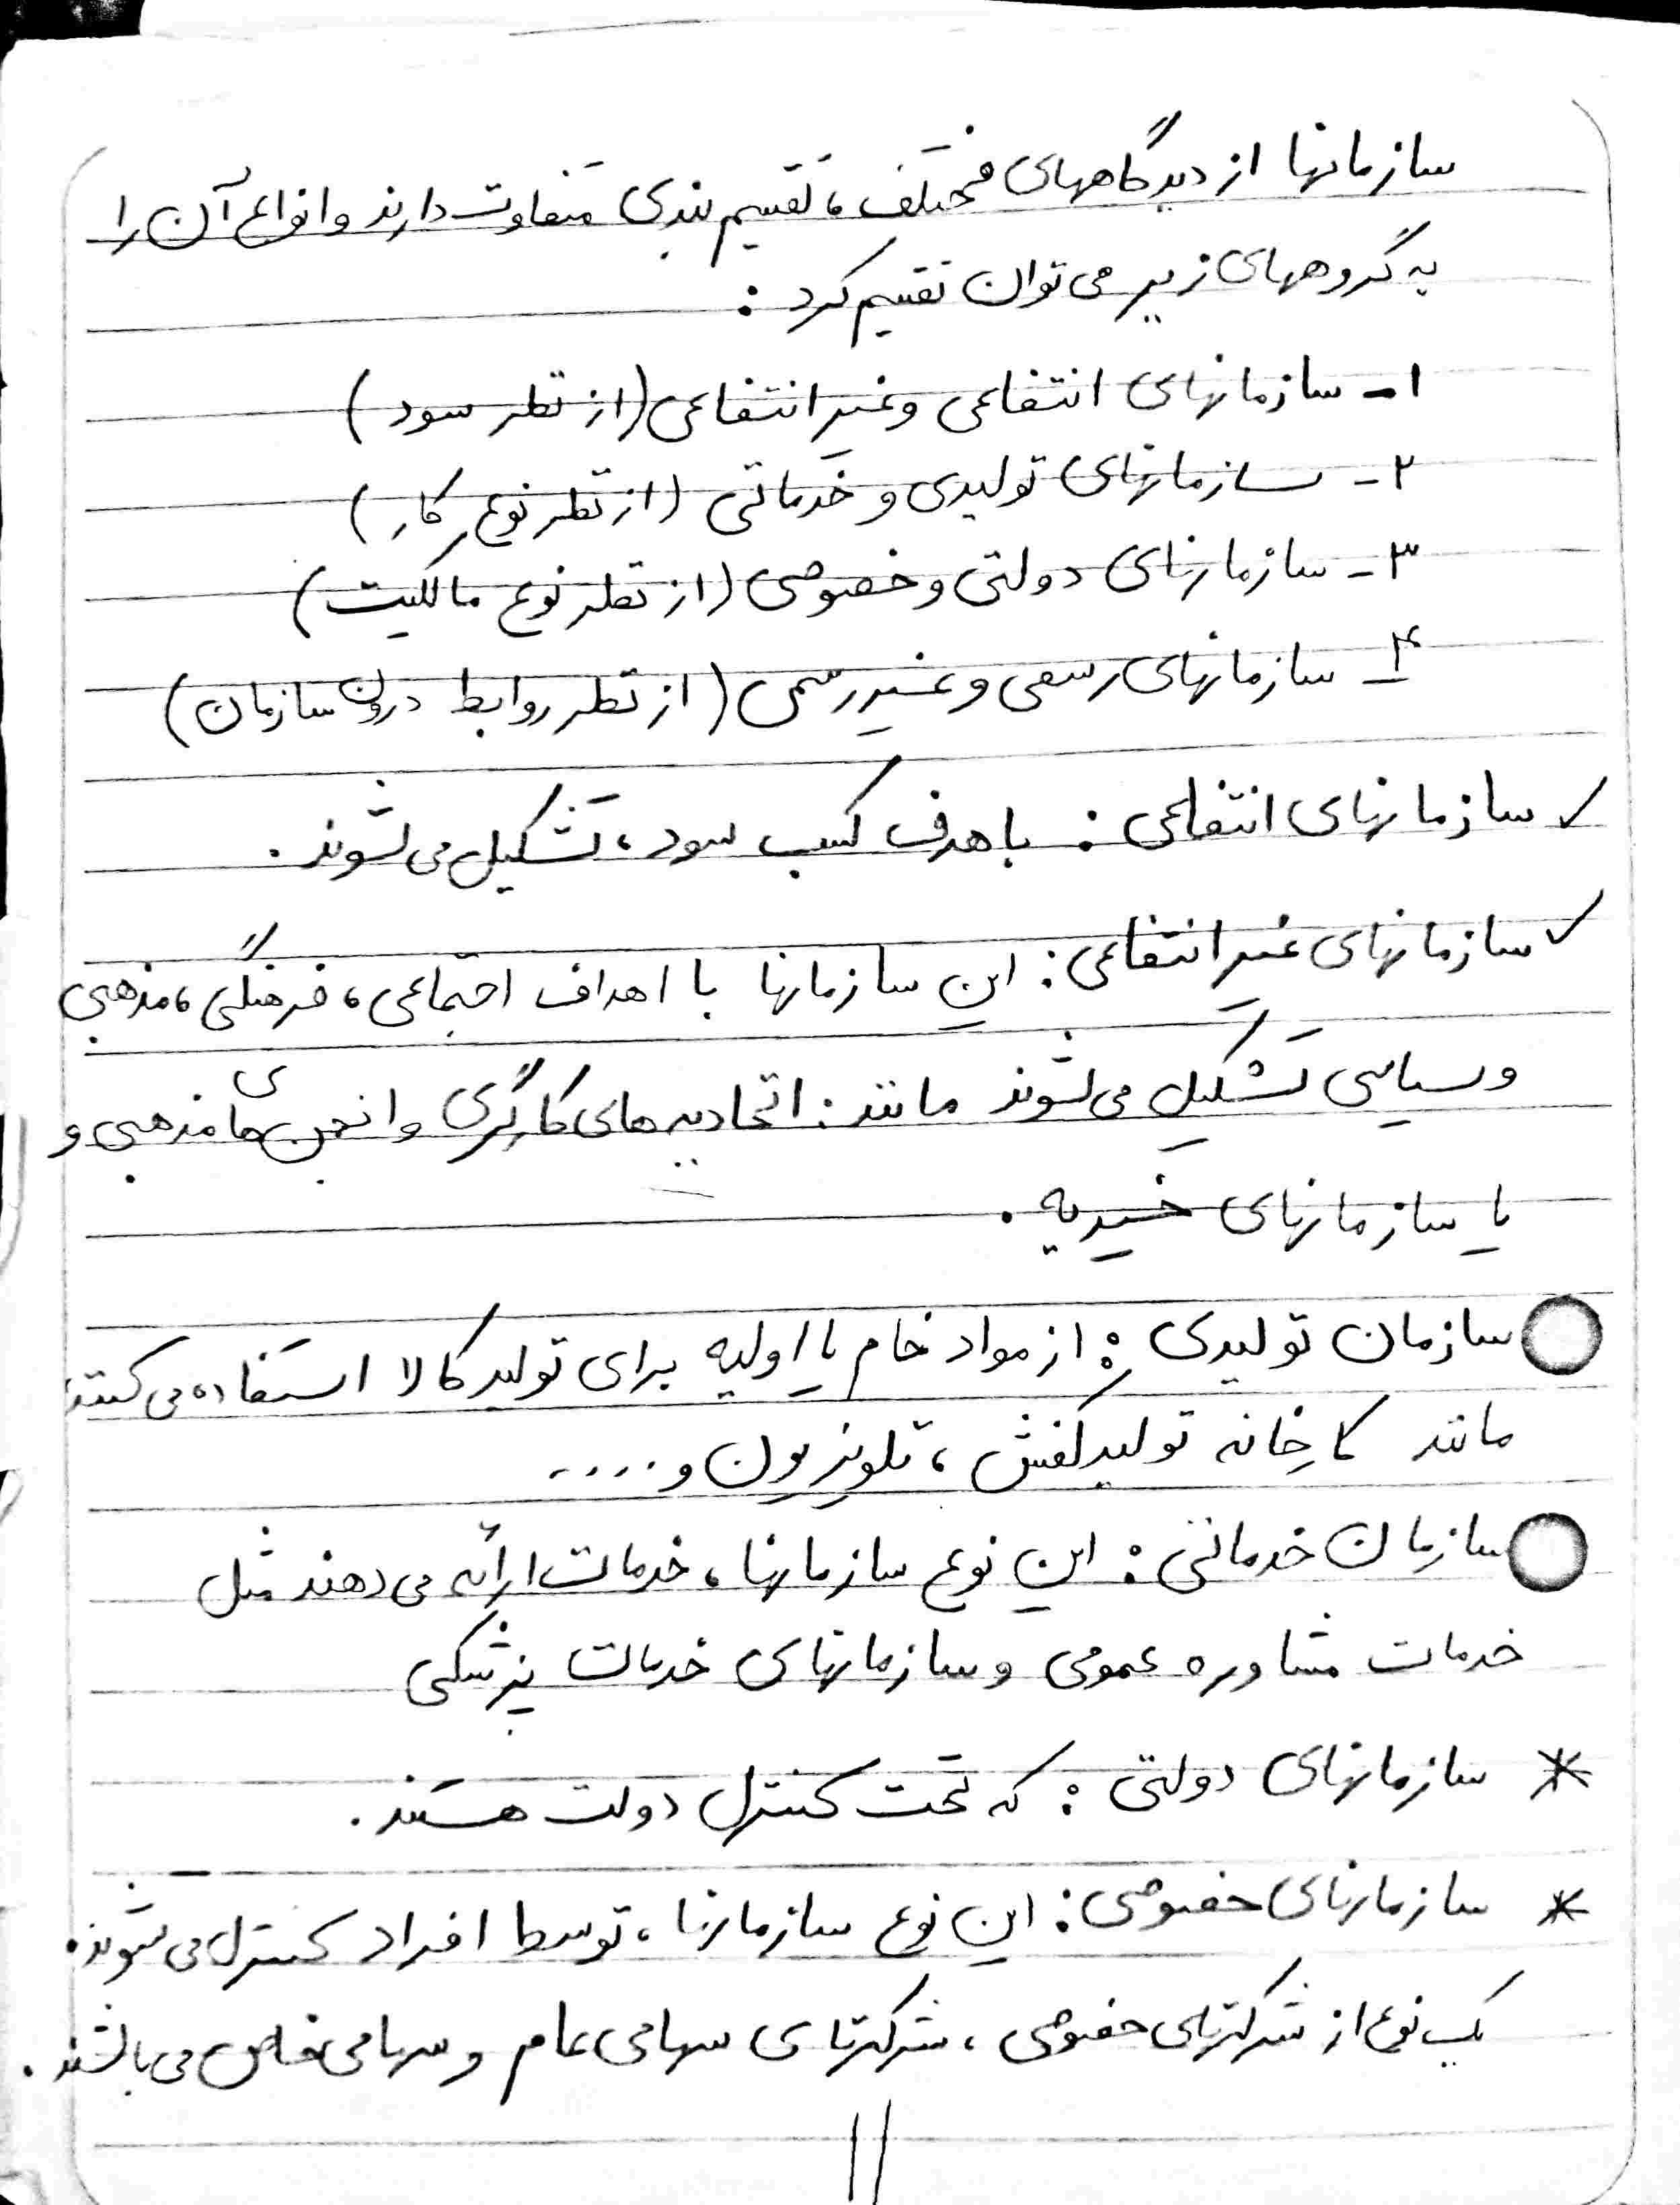 سازمانها از دیدگاههای مختلف، تقسیم بندی متفاوت دارند و انواع آن را
به گروههای زیر می توان تقسیم کرد :
۱- سازمانهای انتفاعی و غیر انتفاعی (از نظر سود)
۲- سازمانهای تولیدی و خدماتی (از نظر نوع کار)
۳- سازمانهای دولتی و خصوصی (از نظر نوع مالکیت)
۴- سازمانهای رسمی و غیر رسمی (از نظر روابط درون سازمان)
✓ سازمانهای انتفاعی : با هدف کسب سود، تشکیل می شوند.
✓ سازمانهای غیر انتفاعی : این سازمانها با اهداف اجتماعی، فرهنگی، مذهبی
و سیاسی تشکیل می شوند مانند : اتحادیه های کارگری و انجمن های مذهبی و
یا سازمانهای خیریه .
سازمان تولیدی : از مواد خام یا اولیه برای تولید کالا استفاده می کنند
مانند کارخانه تولید کفش، تلویزیون و .....
سازمان خدماتی : این نوع سازمانها، خدمات ارائه می دهند مثل
خدمات مشاوره عمومی و سازمانهای خدمات پزشکی
* سازمانهای دولتی : که تحت کنترل دولت هستند.
* سازمانهای خصوصی : این نوع سازمانها، توسط افراد کنترل می شوند.
یک نوع از شرکتهای خصوصی، شرکتهای سهامی عام و سهامی خاص می باشند.
11